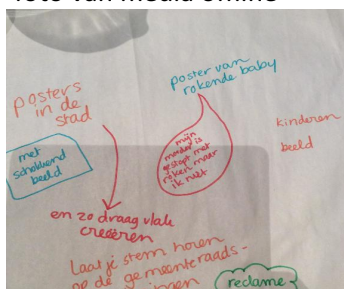 posters
in de
stad
met
schokkend
beeld
poster van
rokende baby
mijn
moeder is
gestopt met
roken maar
ik niet
kinderen
beeld
en zo draagvlak
creëeren
Laat je stem horen
op de gemeenteraads-
reclame